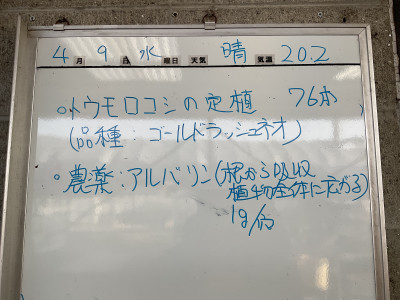 4月9日水曜日天気 晴 気温 20.2
○トウモロコシの定植 76本
(品種:ゴールドラッシュネオ)
○農薬:アルバリン(根から吸収
植物全体に広がる)
1g/